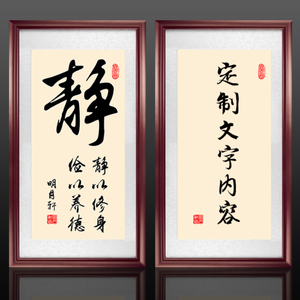 静
静以修身
俭以养德
明月轩
定制文字内容